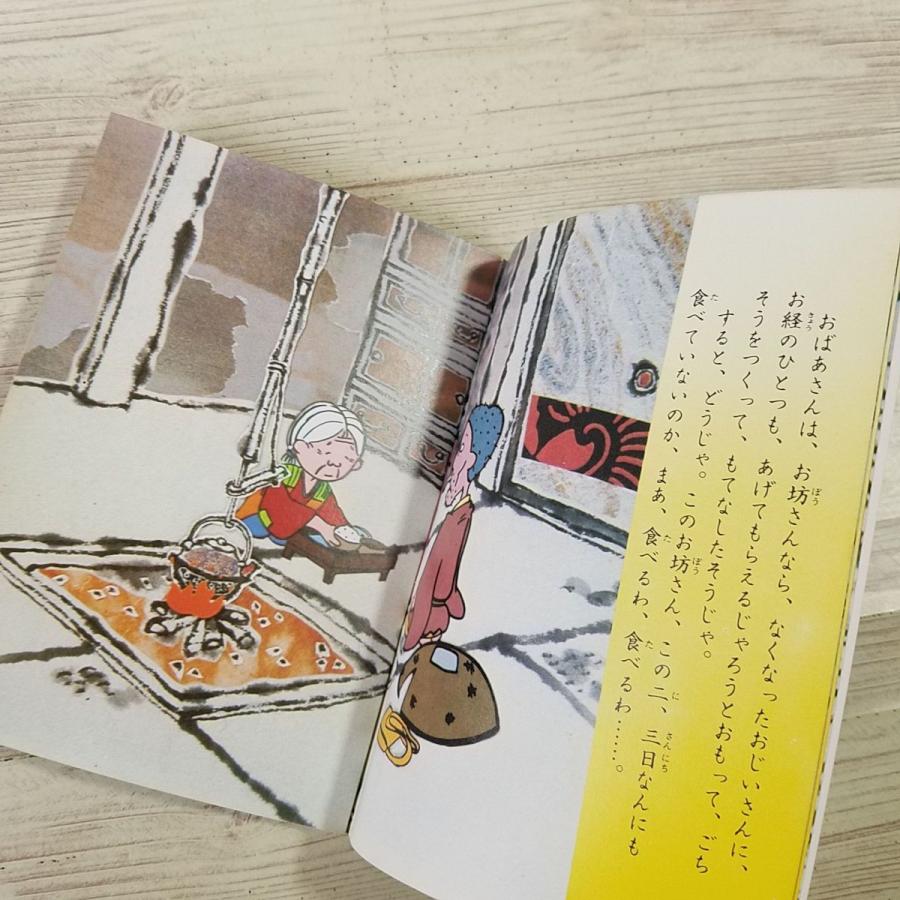 おばあさんは、お坊さんなら、なくなったおじいさんに、
お経のひとつも、あげてもらえるじゃろうとおもって、ごち
そうをつくって、もてなしたそうじゃ。
すると、どうじゃ。このお坊さん、この二、三日なんにも
食べていないのか、まあ、食べるわ、食べるわ……。